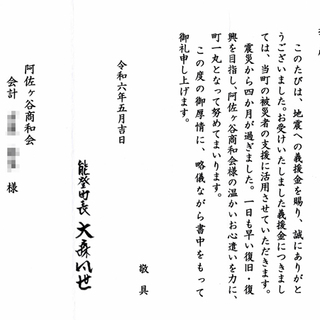 このたびは、地震への義援金を賜り、誠にありがと
うございました。お受けいたしました義援金につきまし
ては、当町の被災者の支援に活用させていただきます。
震災から四か月が過ぎました。一日も早い復旧・復
興を目指し、阿佐ヶ谷商和会様の温かいお心遣いを力に、
町一丸となって努めてまいります。
この度の御厚情に、略儀ながら書中をもって
御礼申し上げます。
敬具
令和六年五月吉日
能登町長 大森凡世
阿佐ヶ谷商和会
会計 様